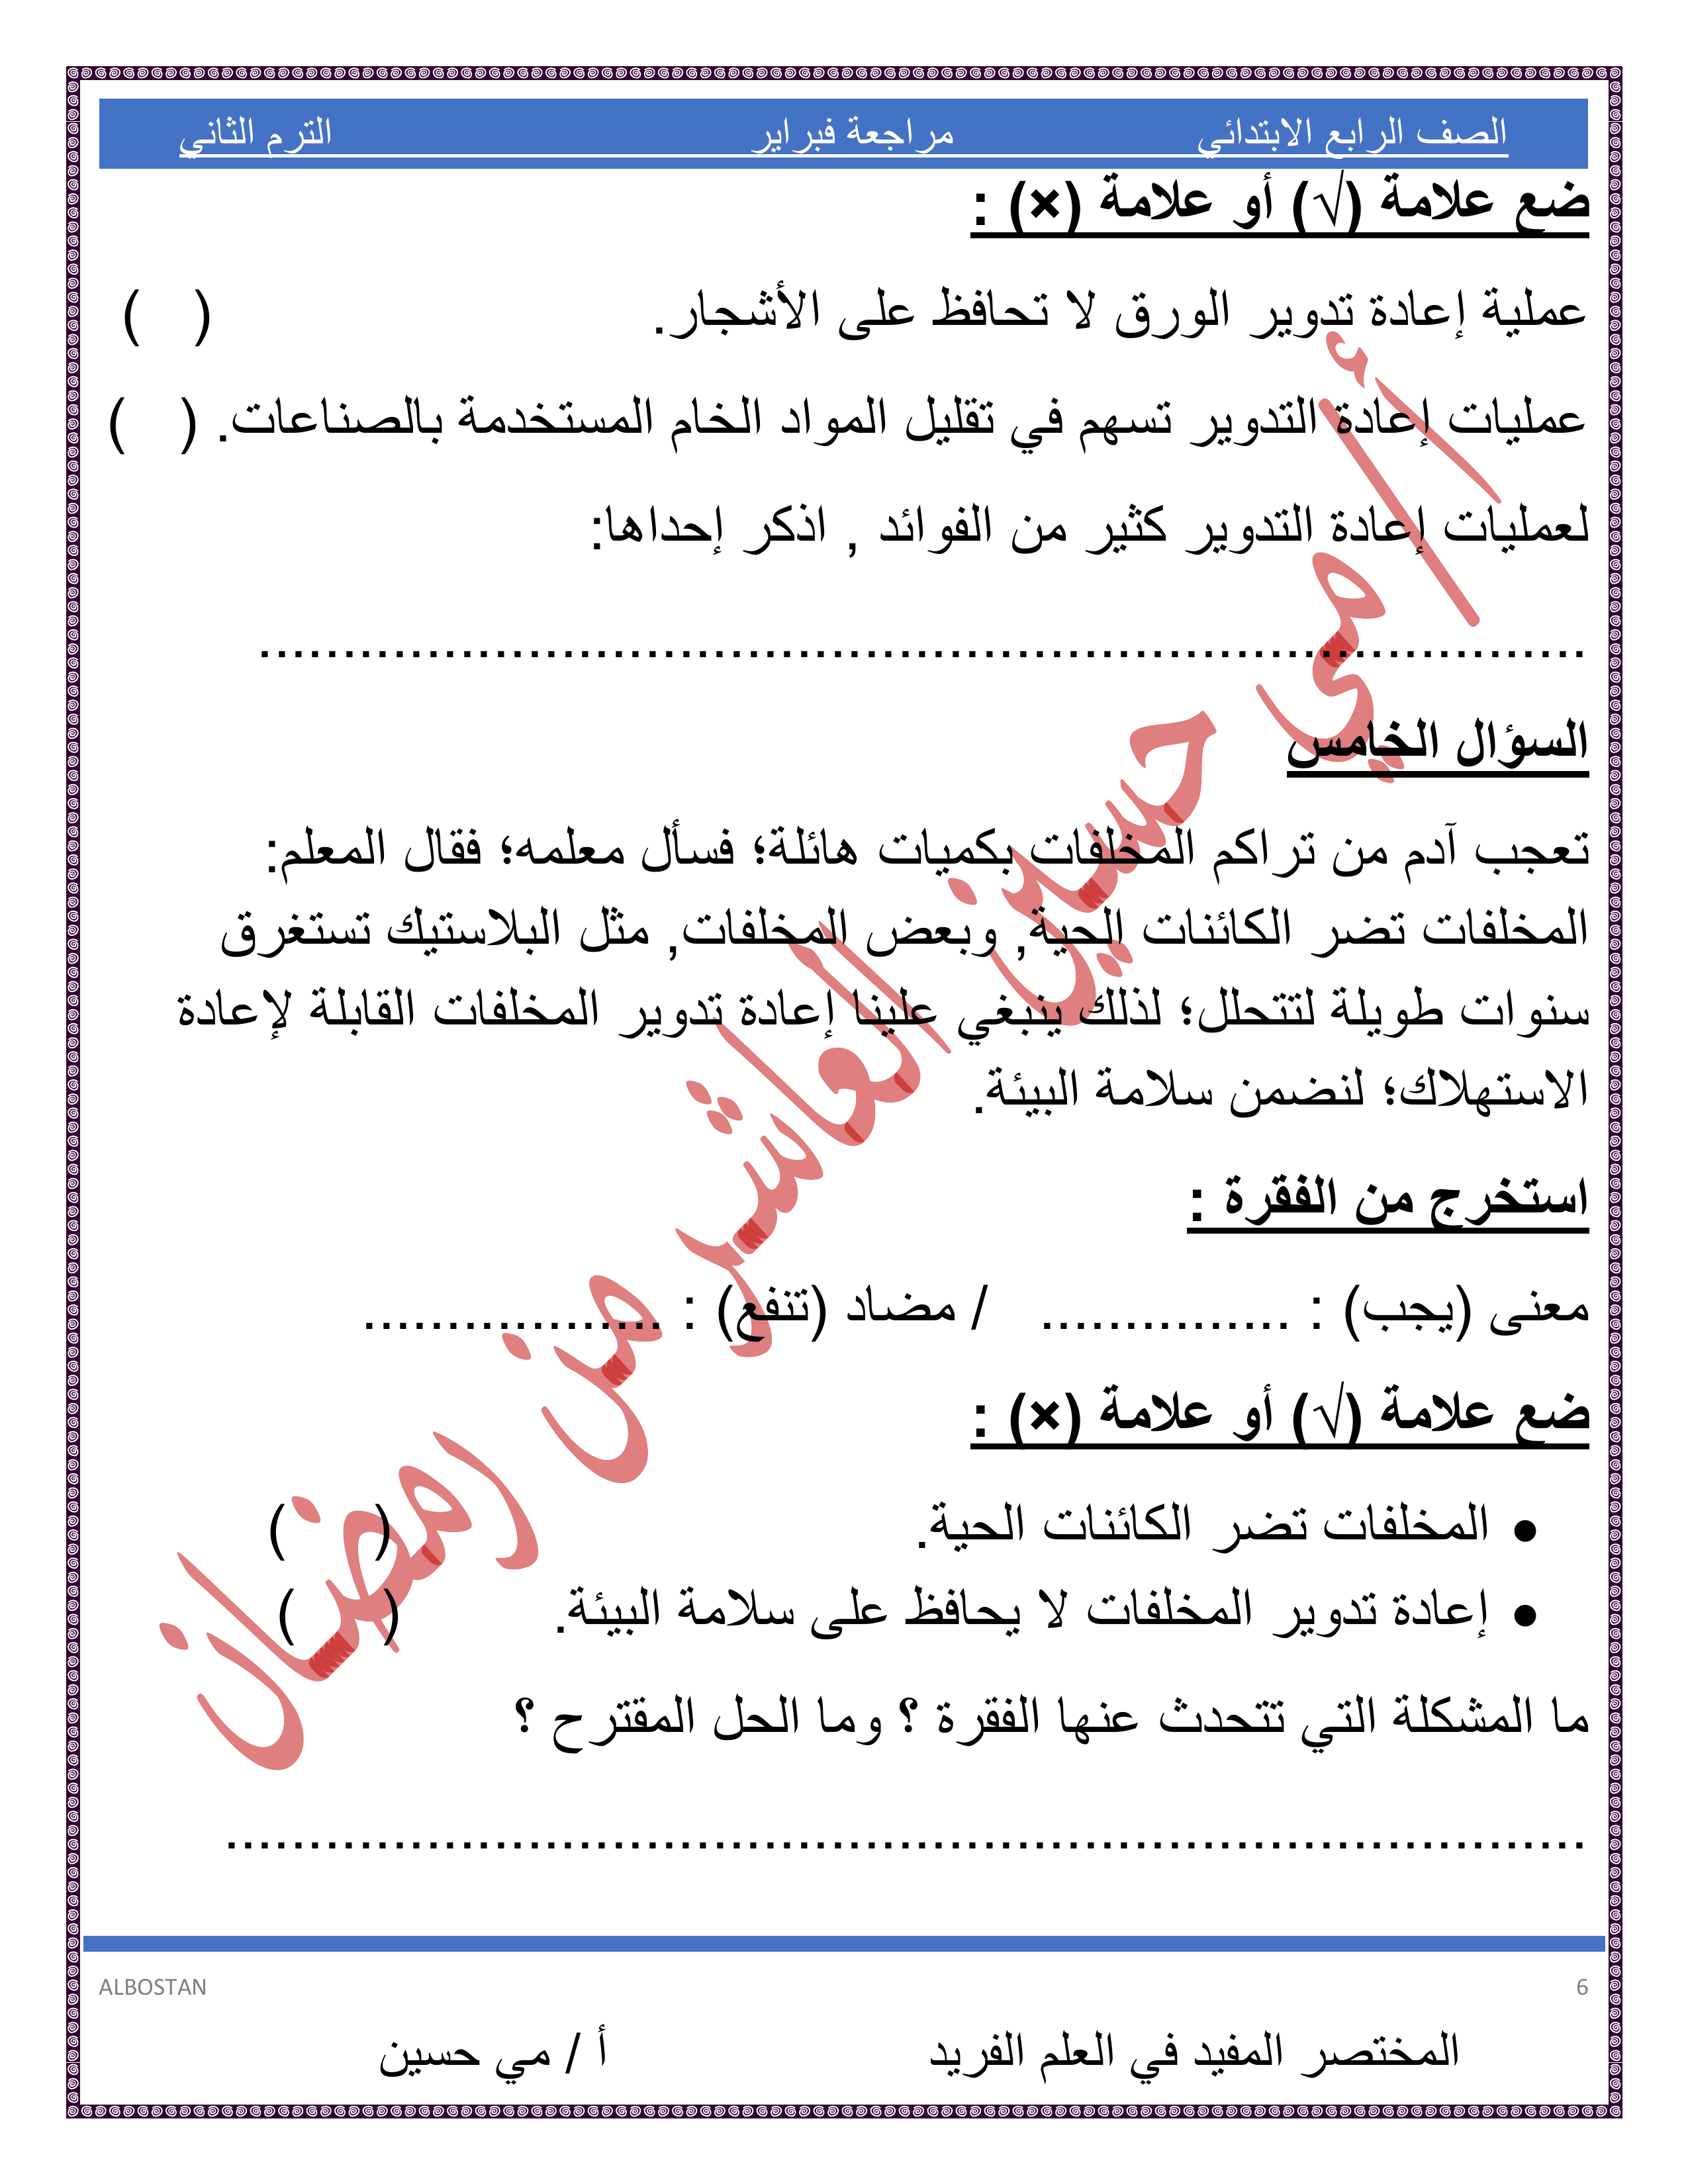 الصف الرابع الابتدائي مراجعة فبراير الترم الثاني
ضع علامة (√) أو علامة (×) :
عملية إعادة تدوير الورق لا تحافظ على الأشجار. ( )
عمليات إعادة التدوير تسهم في تقليل المواد الخام المستخدمة بالصناعات. ( )
لعمليات إعادة التدوير كثير من الفوائد , اذكر إحداها:
................................................................................
السؤال الخامس
تعجب آدم من تراكم المخلفات بكميات هائلة؛ فسأل معلمه؛ فقال المعلم:
المخلفات تضر الكائنات الحية, وبعض المخلفات, مثل البلاستيك تستغرق
سنوات طويلة لتتحلل؛ لذلك ينبغي علينا إعادة تدوير المخلفات القابلة لإعادة
الاستهلاك؛ لنضمن سلامة البيئة.
استخرج من الفقرة :
معنى (يجب) : ............... / مضاد (تنفع) : ..................
ضع علامة (√) أو علامة (×) :
• المخلفات تضر الكائنات الحية. ( )
• إعادة تدوير المخلفات لا يحافظ على سلامة البيئة. ( )
ما المشكلة التي تتحدث عنها الفقرة ؟ وما الحل المقترح ؟
..................................................................................
أ/مي حسين العاشر من رمضان
ALBOSTAN 6
المختصر المفيد في العلم الفريد أ / مي حسين